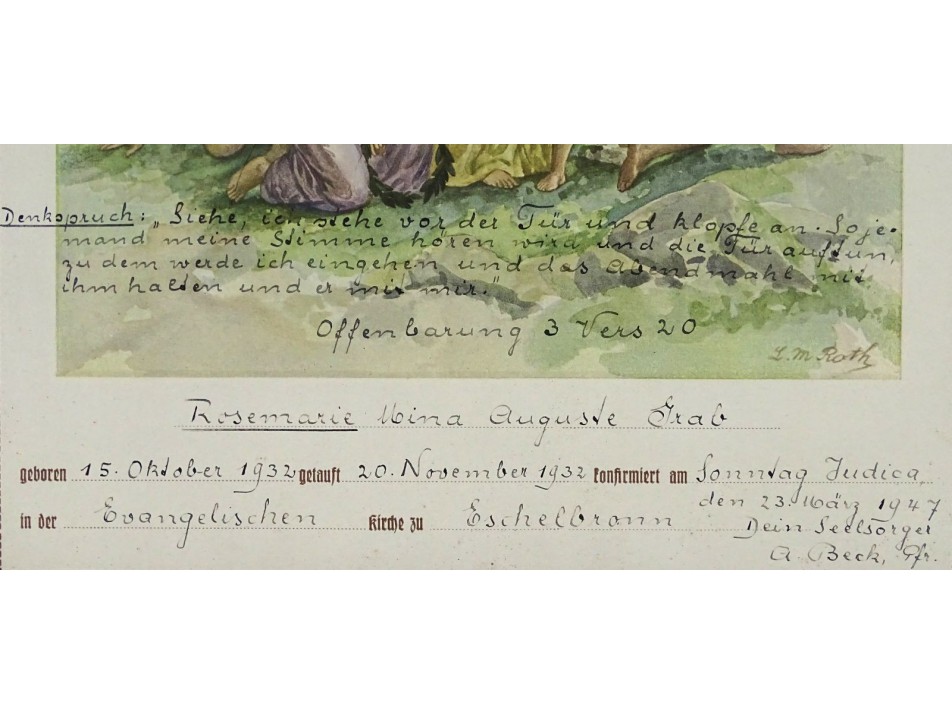 Denkspruch: „Siehe, ich stehe vor der Tür und klopfe an. So je-
mand meine Stimme hören wird und die Tür auftun,
zu dem werde ich eingehen und das Abendmahl mit
ihm halten und er mit mir."
Offenbarung 3 Vers 20
L. M Roth
Rosemarie Mina Auguste Grab
geboren 15. Oktober 1932 getauft 20. November 1932 konfirmiert am Sonntag Judica,
den 23. März 1947
in der Evangelischen Kirche zu Eschelbronn
Dein Seelsorger
A. Beck, Pfr.